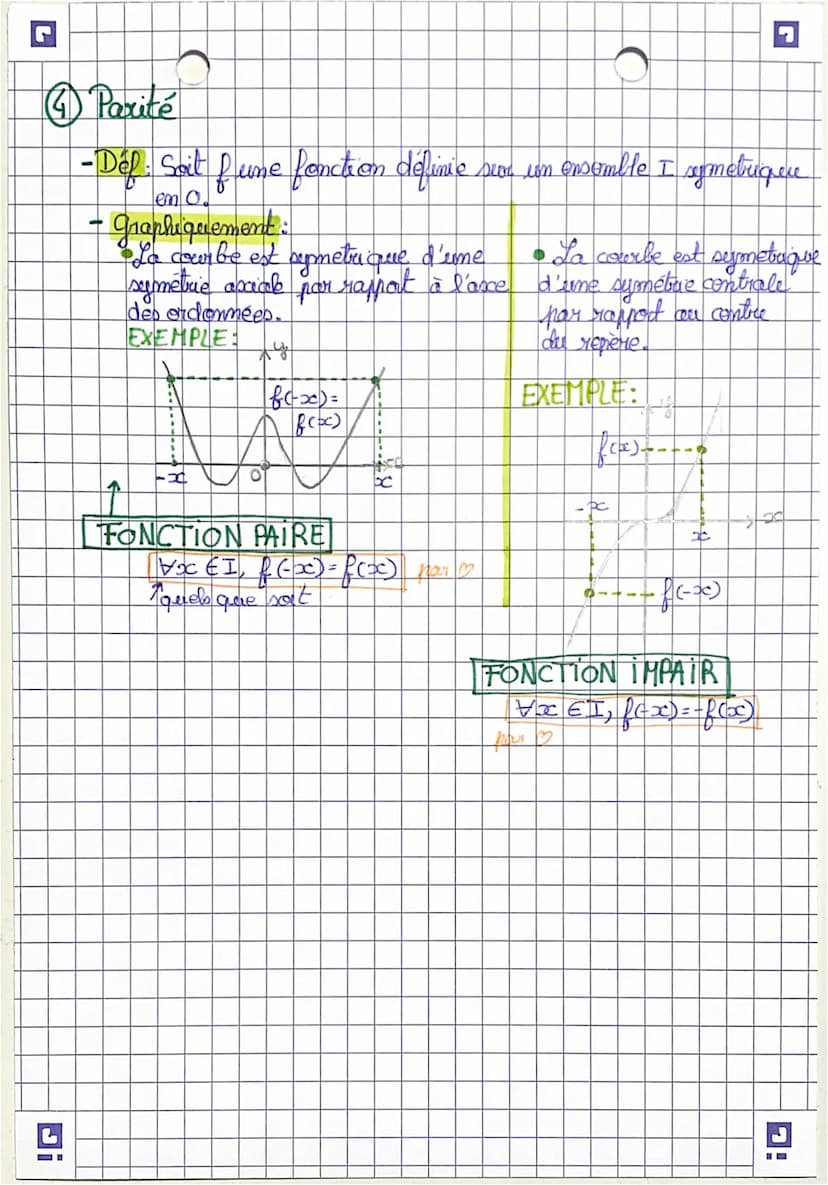 ④ Parité
- Déf: Soit f une fonction définie sur un ensemble I symetrique
en 0.
- Graphiquement:
• La courbe est symetrique d'une
symétrie axiale par rapport à l'axe
des ordonnées.
EXEMPLE:
y
f(-x)=
f(x)
-x
0
x
x
FONCTION PAIRE
∀x ∈ I, f(-x) = f(x) par ♡
↑ quels que soit
• La courbe est symetrique
d'une symétrie centrale
par rapport au centre
du repère.
EXEMPLE:
y
f(x)
-x
x
x
f(-x)
FONCTION IMPAIR
∀x ∈ I, f(-x) = -f(x)
par ♡